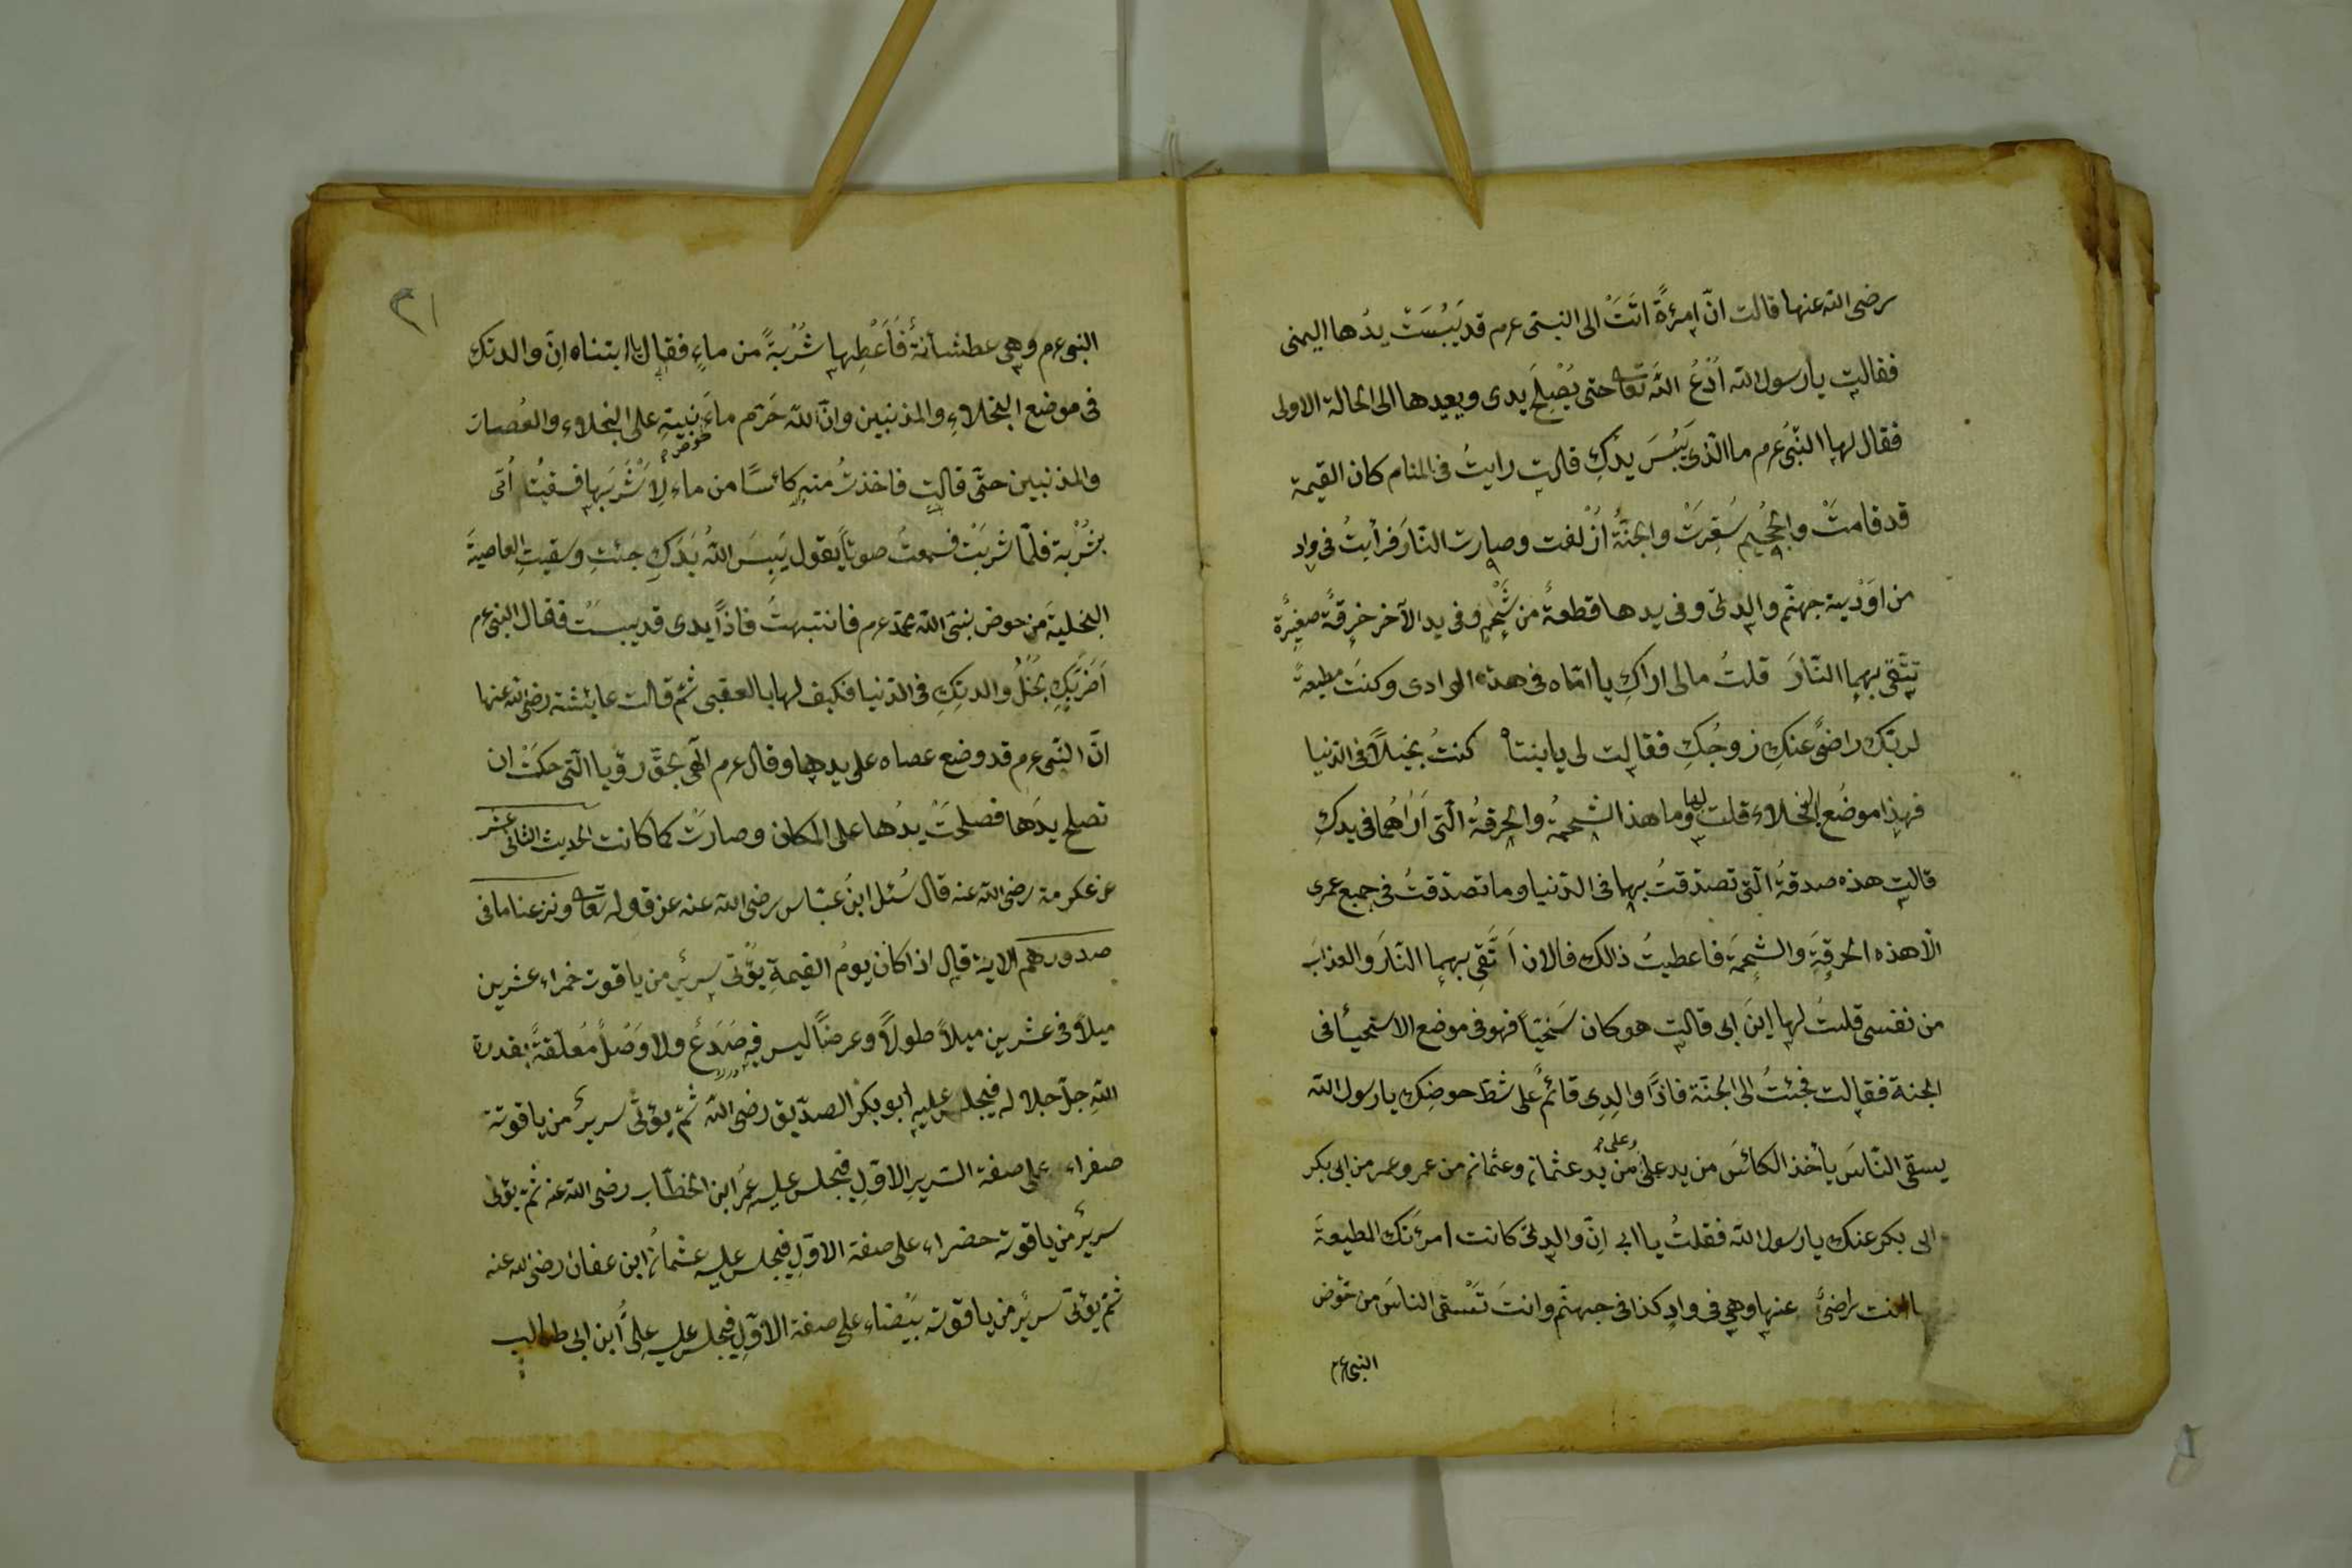 رضى الله عنها قالت انّ امرئةً اتَتْ الى النبى عم قد يَبُسَتْ يدُها اليمنى
فقالت يا رسول الله اُدْعُ اللّهَ تعا حتى يُصْلِحَ يدى ويعيدها الى الحالة الاولى
فقال لها النّبىُ عم ما الّذى يَبُسَ يدُكِ قالت رايتُ فى المنام كان القيمة
قد قامتْ والجحيم سُعِرَتْ والجنّةُ اُزْلفت وصارت النّارَ فرأيتُ فى وادٍ
من اَوْدية جهنّم والدتى وفى يدها قطعةٌ من شَحْمٍ وفى يد الآخر خِرقةٌ صغيرة
تتّقى بهما النّارَ قلتُ مالى اراكِ يا امّاه فى هذه الوادى وكنتَ مطيعةً
لربّك راضىً عنكِ زوجُكِ فقالت لى يا بنتاه كنتُ بخيلاً فى الدّنيا
فهذا موضعُ البخلاء قلت لها وما هذا الشحمةُ والخرقةُ الّتى اَرٰاهُما فى يدكِ
قالت هذه صدقةُ الّتى تصدّقتُ بهما فى الدّنيا وما تصدّقتُ فى جميع عمرى
الّا هذه الخرقةَ والشحمةَ فاعطيتُ ذالك فالان اَتَّقِى بهما النّارَ والعذابَ
من نفسى قلتُ لها اينَ ابى قالت هو كان سَخيّاً فهو فى موضع الاسخيأ فى
الجنة فقالت فجئتُ الى الجنّة فاذًا والِدِى قائمٌ على شطّ حوضِك يا رسول الله
يسقى النّاسَ يأخذ الكائسَ من يد علىّ وعلى من يد عثمان وعثمان من عمر وعمر من ابى بكر
ابى بكر عنك يا رسول الله فقلتُ يا ابى انّ والدتى كانت امرئتك المطيعةَ
انت راضىً عنها وهى فى وادٍ كذا فى جهنّم وانتَ تَسْقى الناسَ من حوض
النبى عم
٣١
النبى عم وهى عطشانةٌ فَاَعْطِها شُرْبةً من ماءٍ فقال يا ابنتاه انّ والدتكِ
فى موضع البخلاءِ والمذنبين وانّ اللّه حَرّم ماءَ حوض نبيّهِ على البخلاء والعُصات
والمذنبين حتّى قالت فاخذتُ منه كائسًا من ماء لِاَشْرَبَها فسقيتُ اُمّى
بشُرْبة فلمّا شربَتْ فسمعتُ صوتاً يقول يَبِسَ اللّهُ يَدَكِ جئتِ وسقيتِ العاصيةَ
البخليةَ من حوض نبىّ اللّه محمد عم فانتبهتُ فاذًا يدى قد يبستْ فقال النبى عم
اَضَرَّبَكِ بخلُ والدتِكِ فى الدّنيا فكيف لها بالعقبى ثمّ قالت عايشة رضى الله عنها
انّ النّبى عم قد وضع عصاه على يدها وقال عم الٓهى بحقّ رؤيا الّتى حكَتْ ان
تصلح يدَها فصلحَتْ يدُها على المكان وصارَتْ كما كانت الحديث الثانى عشر
عن عكرمة رضى الله عنه قال سُئل ابنُ عبّاس رضى الله عنه عن قوله تعا ونزعنا ما فى
صدورهم الاية قال اذا كان يومُ القيمةِ يؤتى سريرٌ من ياقوت خمراء عشرين
ميلاً فى عشرين ميلاً طولاً وعرضاً ليس فيه صَدَعٌ ولا وَصْلٌ مُعلّقةً بقدرة
اللّهِ جلّ جلاله فيجلس عليه ابو بكر الصدّيق رضى اللّه ثمّ يؤتى سريرٌ من ياقوتة
صفراء على صفة السّريرِ الاوّلِ فيجلس عليه عمرُ ابن الخطّاب رضى الله عنه ثمّ يؤتى
سريرٌ من ياقوتة حضراء على صفة الاوّلِ فيجلس عليه عثمانُ ابن عفان رضى الله عنه
ثمّ يؤتى سريرٌ من ياقوتة بيْضاء على صفة الاوّلِ فيجلس عليه علىُّ ابن ابى طالب